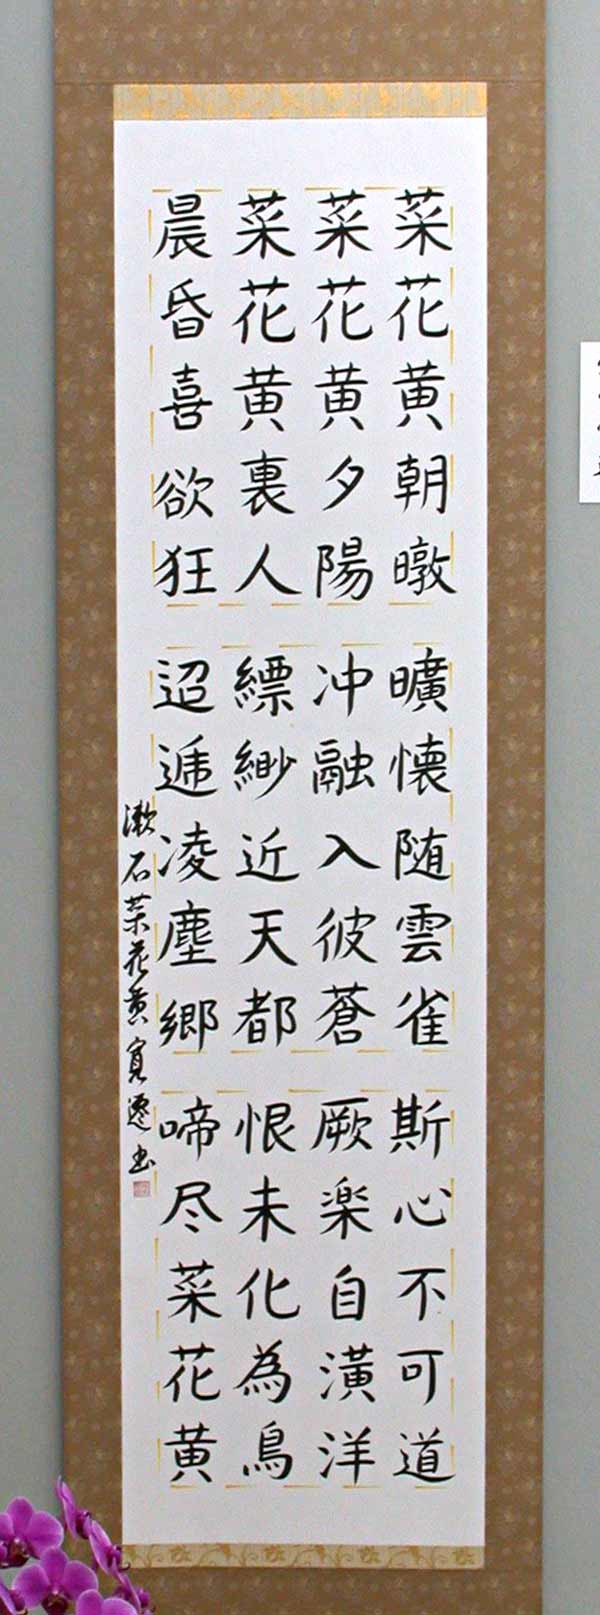 菜花黄朝暾曠懐随雲雀斯心不可道
菜花黄夕陽冲融入彼蒼厥楽自潢洋
菜花黄裏人縹緲近天都恨未化為鳥
晨昏喜欲狂迢逓凌塵郷啼尽菜花黄
漱石菜花黄寛遷書